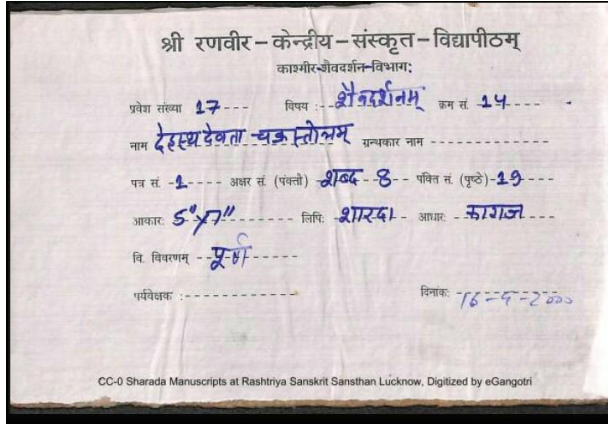 श्री रणवीर – केन्द्रीय – संस्कृत – विद्यापीठम्
काश्मीर-शैवदर्शन-विभाग:
प्रवेश संख्या 17---- विषय :--शैवदर्शनम् क्रम सं. 14----
नाम देहस्थदेवता चक्रस्तोत्रम् ग्रन्थकार नाम ---------------
पत्र सं. -1----- अक्षर सं. (पंक्तौ) -शब्द--8--- पंक्ति सं. (पृष्ठे)-19---
आकार: 5"x7"------- लिपि: -शारदा-- आधार: --कागज----
वि. विवरणम् --पूर्ण-----
पर्यवेक्षक :------------- दिनांक: 16-5-2000
CC-0 Sharada Manuscripts at Rashtriya Sanskrit Sansthan Lucknow, Digitized by eGangotri